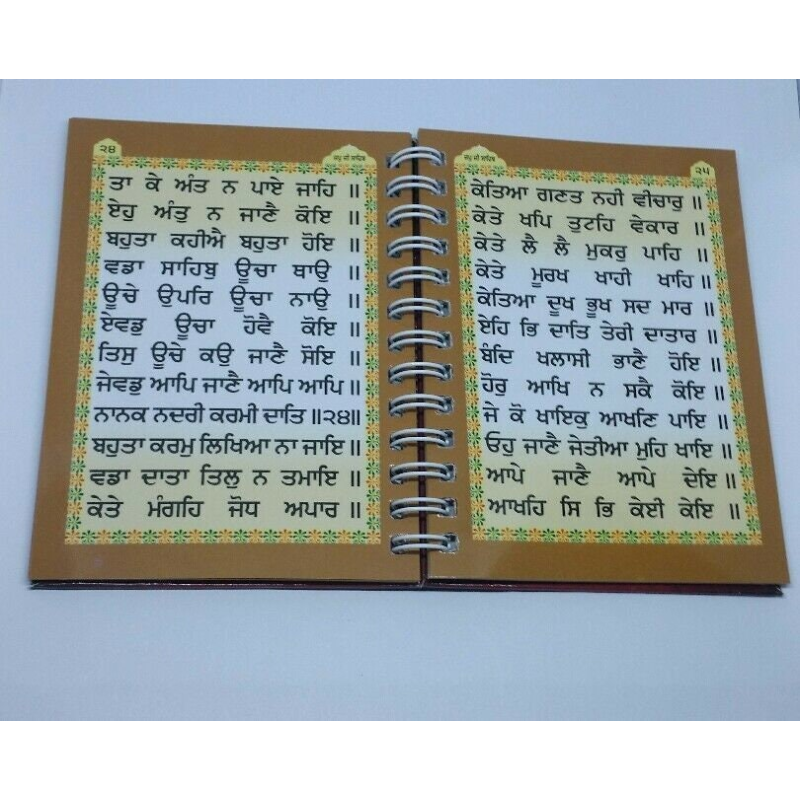 ੨੪
ਜਪੁ ਜੀ ਸਾਹਿਬ
ਤਾ ਕੇ ਅੰਤ ਨ ਪਾਏ ਜਾਹਿ ॥
ਏਹੁ ਅੰਤੁ ਨ ਜਾਣੈ ਕੋਇ ॥
ਬਹੁਤਾ ਕਹੀਐ ਬਹੁਤਾ ਹੋਇ ॥
ਵਡਾ ਸਾਹਿਬੁ ਊਚਾ ਥਾਉ ॥
ਊਚੇ ਉਪਰਿ ਊਚਾ ਨਾਉ ॥
ਏਵਡੁ ਊਚਾ ਹੋਵੈ ਕੋਇ ॥
ਤਿਸੁ ਊਚੇ ਕਉ ਜਾਣੈ ਸੋਇ ॥
ਜੇਵਡੁ ਆਪਿ ਜਾਣੈ ਆਪਿ ਆਪਿ ॥
ਨਾਨਕ ਨਦਰੀ ਕਰਮੀ ਦਾਤਿ ॥੨੪॥
ਬਹੁਤਾ ਕਰਮੁ ਲਿਖਿਆ ਨਾ ਜਾਇ ॥
ਵਡਾ ਦਾਤਾ ਤਿਲੁ ਨ ਤਮਾਇ ॥
ਕੇਤੇ ਮੰਗਹਿ ਜੋਧ ਅਪਾਰ ॥
ਜਪੁ ਜੀ ਸਾਹਿਬ
੨੫
ਕੇਤਿਆ ਗਣਤ ਨਹੀ ਵੀਚਾਰੁ ॥
ਕੇਤੇ ਖਪਿ ਤੁਟਹਿ ਵੇਕਾਰ ॥
ਕੇਤੇ ਲੈ ਲੈ ਮੁਕਰੁ ਪਾਹਿ ॥
ਕੇਤੇ ਮੂਰਖ ਖਾਹੀ ਖਾਹਿ ॥
ਕੇਤਿਆ ਦੂਖ ਭੂਖ ਸਦ ਮਾਰ ॥
ਏਹਿ ਭਿ ਦਾਤਿ ਤੇਰੀ ਦਾਤਾਰ ॥
ਬੰਦਿ ਖਲਾਸੀ ਭਾਣੈ ਹੋਇ ॥
ਹੋਰੁ ਆਖਿ ਨ ਸਕੈ ਕੋਇ ॥
ਜੇ ਕੋ ਖਾਇਕੁ ਆਖਣਿ ਪਾਇ ॥
ਓਹੁ ਜਾਣੈ ਜੇਤੀਆ ਮੁਹਿ ਖਾਇ ॥
ਆਪੇ ਜਾਣੈ ਆਪੇ ਦੇਇ ॥
ਆਖਹਿ ਸਿ ਭਿ ਕੇਈ ਕੇਇ ॥